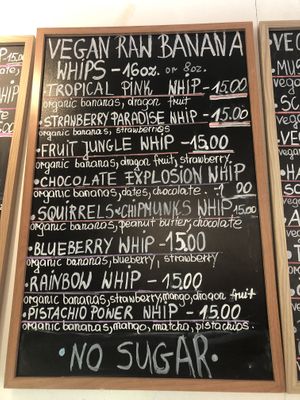 VEGAN RAW BANANA
WHIPS - 16oz. or 8oz.
TROPICAL PINK WHIP - 15.00
organic bananas, dragon fruit
• STRAWBERRY PARADISE WHIP - 15.00
organic bananas, strawberries
• FRUIT JUNGLE WHIP - 15.00
organic bananas, dragon fruit, strawberry
• CHOCOLATE EXPLOSION WHIP
organic bananas, dates, chocolate.
• SQUIRRELS & CHIPMUNKS WHIP 15.00
organic bananas, peanut butter, chocolate
• BLUEBERRY WHIP - 15.00
organic bananas, blueberry, strawberry
• RAINBOW WHIP - 15.00
organic bananas, strawberry, mango, dragon fruit
• PISTACHIO POWER WHIP - 15.00
organic bananas, mango, matcha, pistachios.
• NO SUGAR •